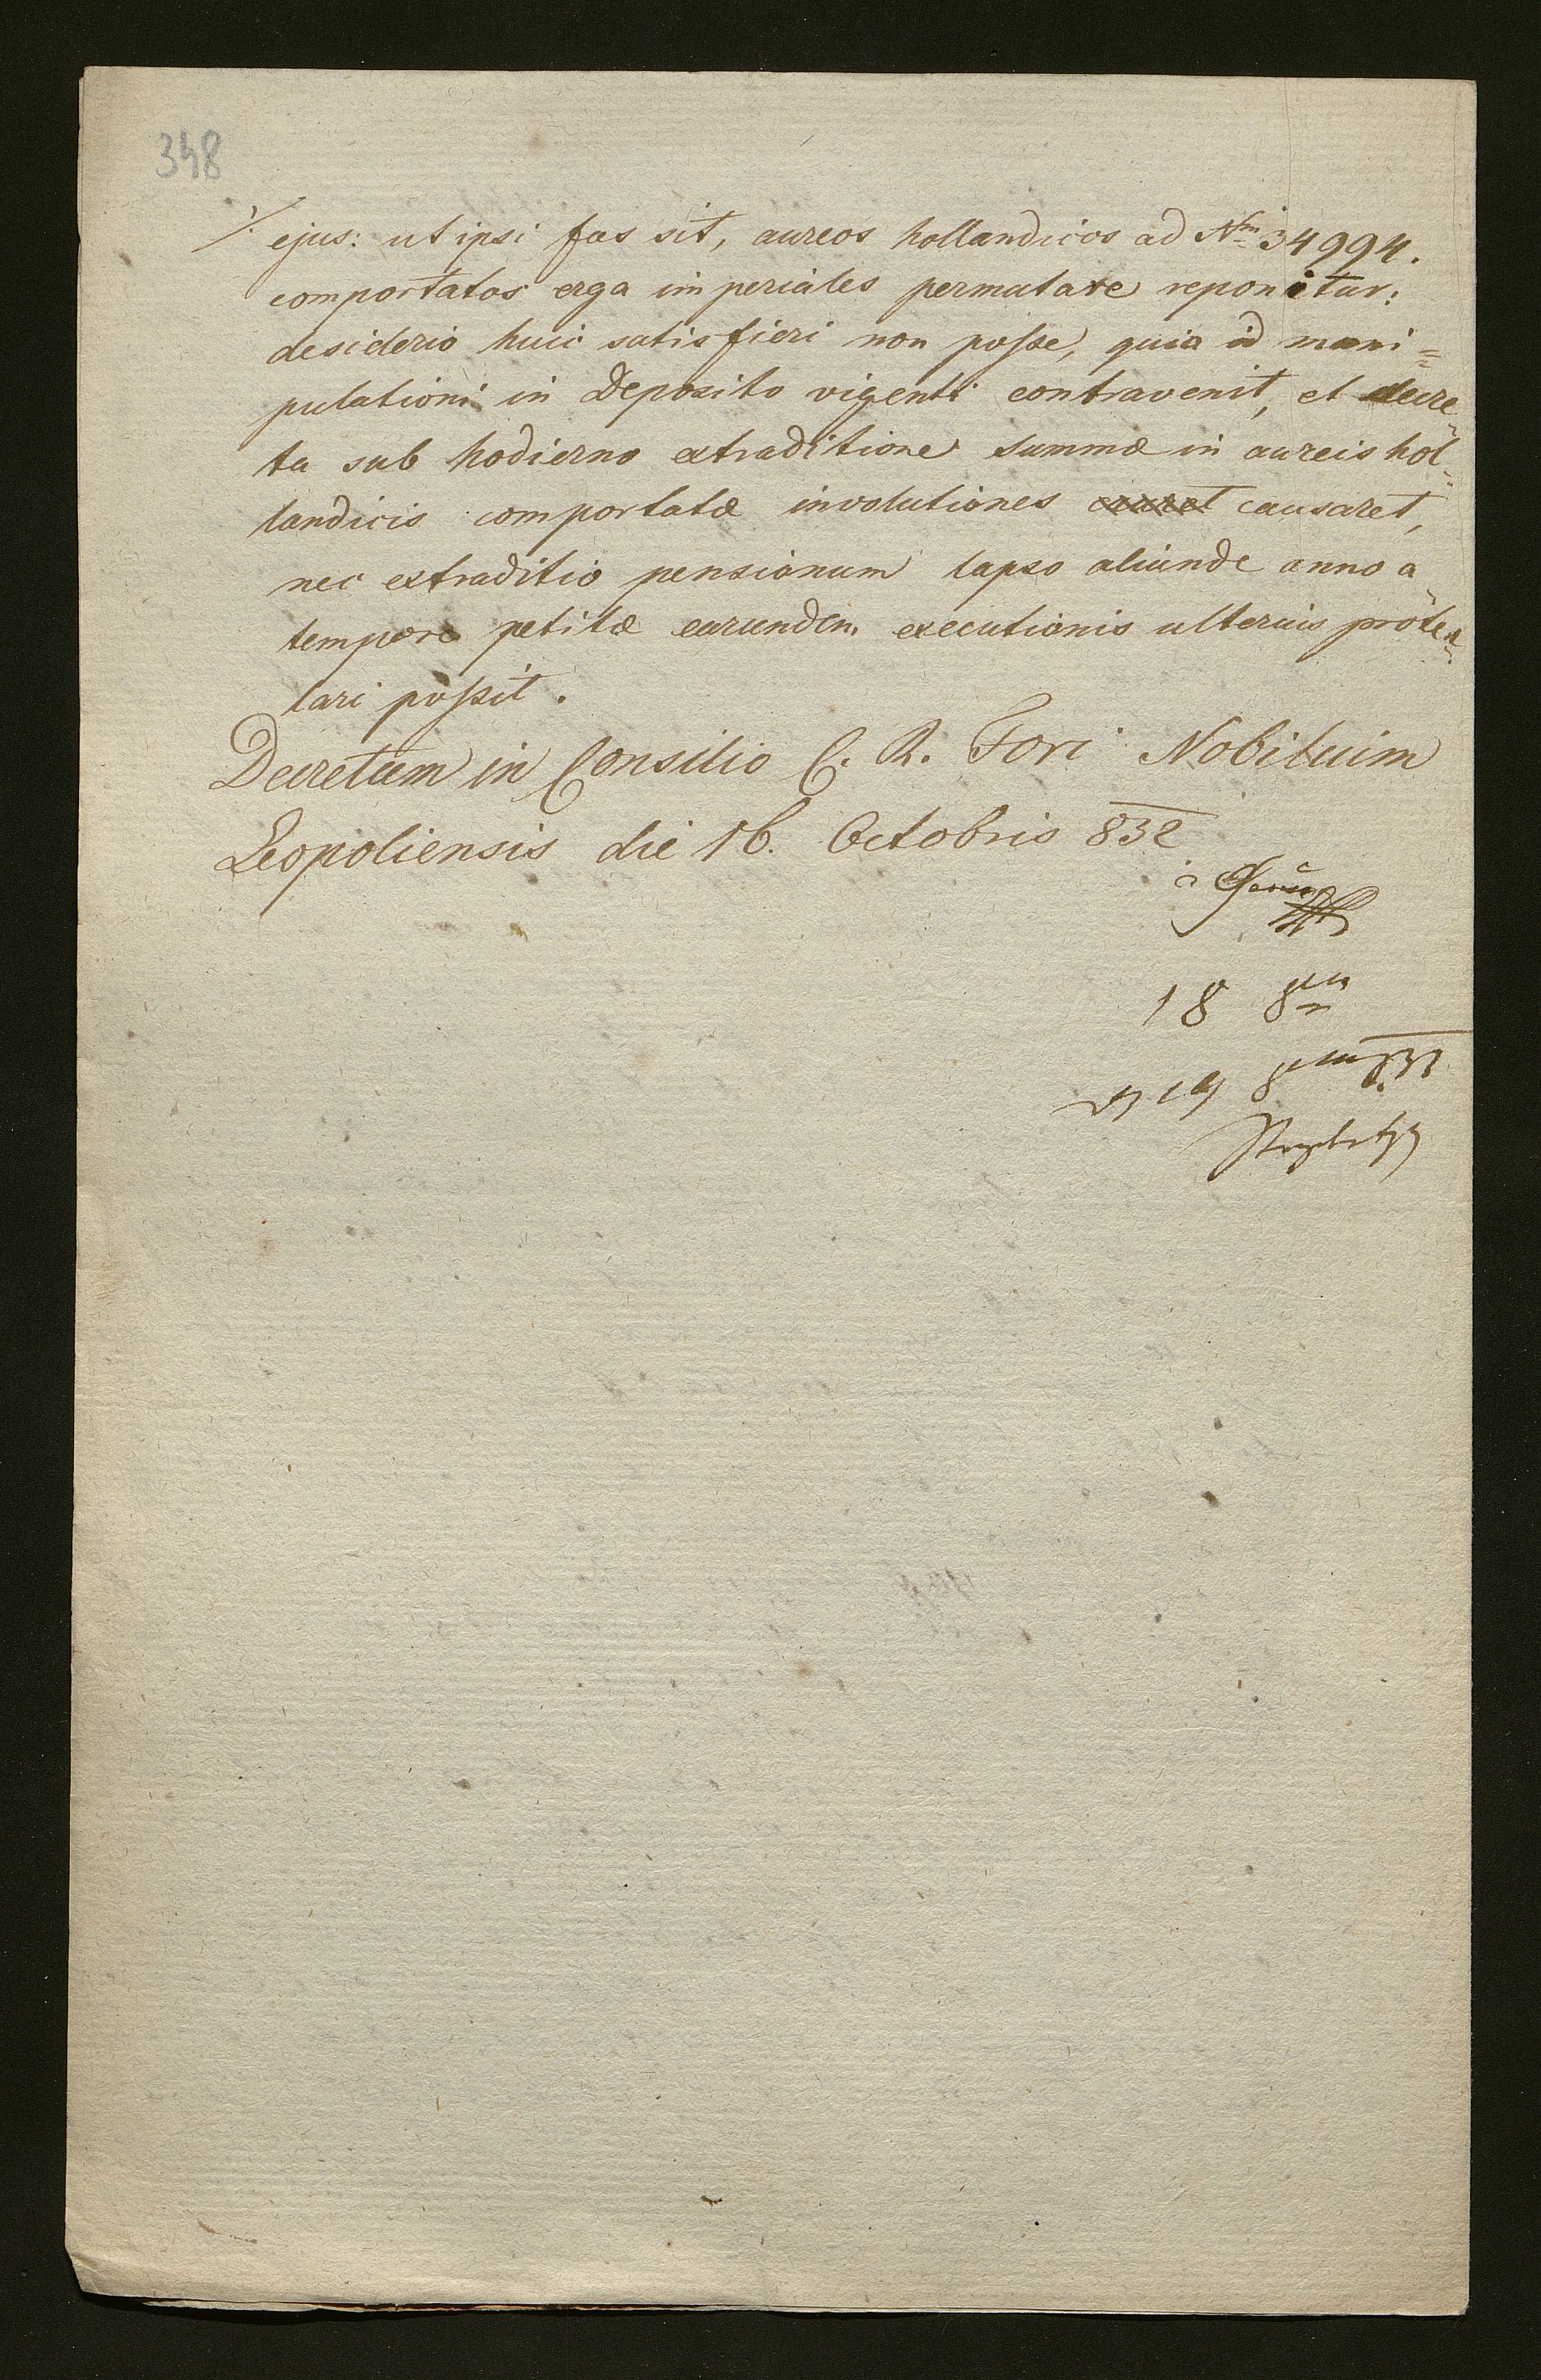 348
./. ejus: ut ipsi fas sit, aureos hollandicos ad Nrm 34994.
comportatos erga imperiales permutare reponitur:
desiderio huic satisfieri non posse, quia id mani=
pulationi in Deposito vigenti contravenit, et decre=
ta sub hodierno extraditione summæ in aureis hol=
landicis comportatæ involutiones causaret,
nec extraditio pensionum lapso aliunde anno a
tempore petitæ earundem executionis ulterius prote=
lari possit.
Decretum in Consilio C. R. Fori Nobilium
Leopoliensis die 16. Octobris 832
18 8bris
19 8bris 832